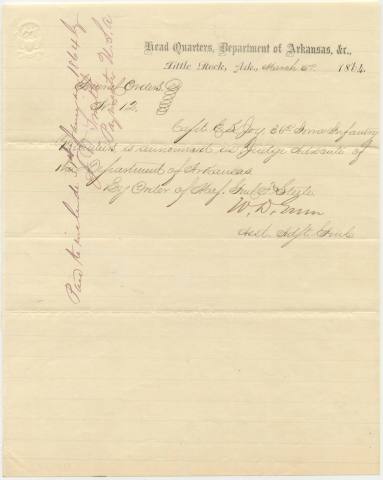 Head Quarters, Department of Arkansas, &c.,
Little Rock, Ark., March 1864.
General Orders,
No 12.
Capt. Ed. Joy, 36th Iowa Infantry
Volunteers is announced as Judge Advocate of
the Department of Arkansas
By Order of Maj. Genl. F. Steele
W. D. Green
Asst. Adjt. Genl.
Paid to include 1864 by
Paymaster U.S.A.